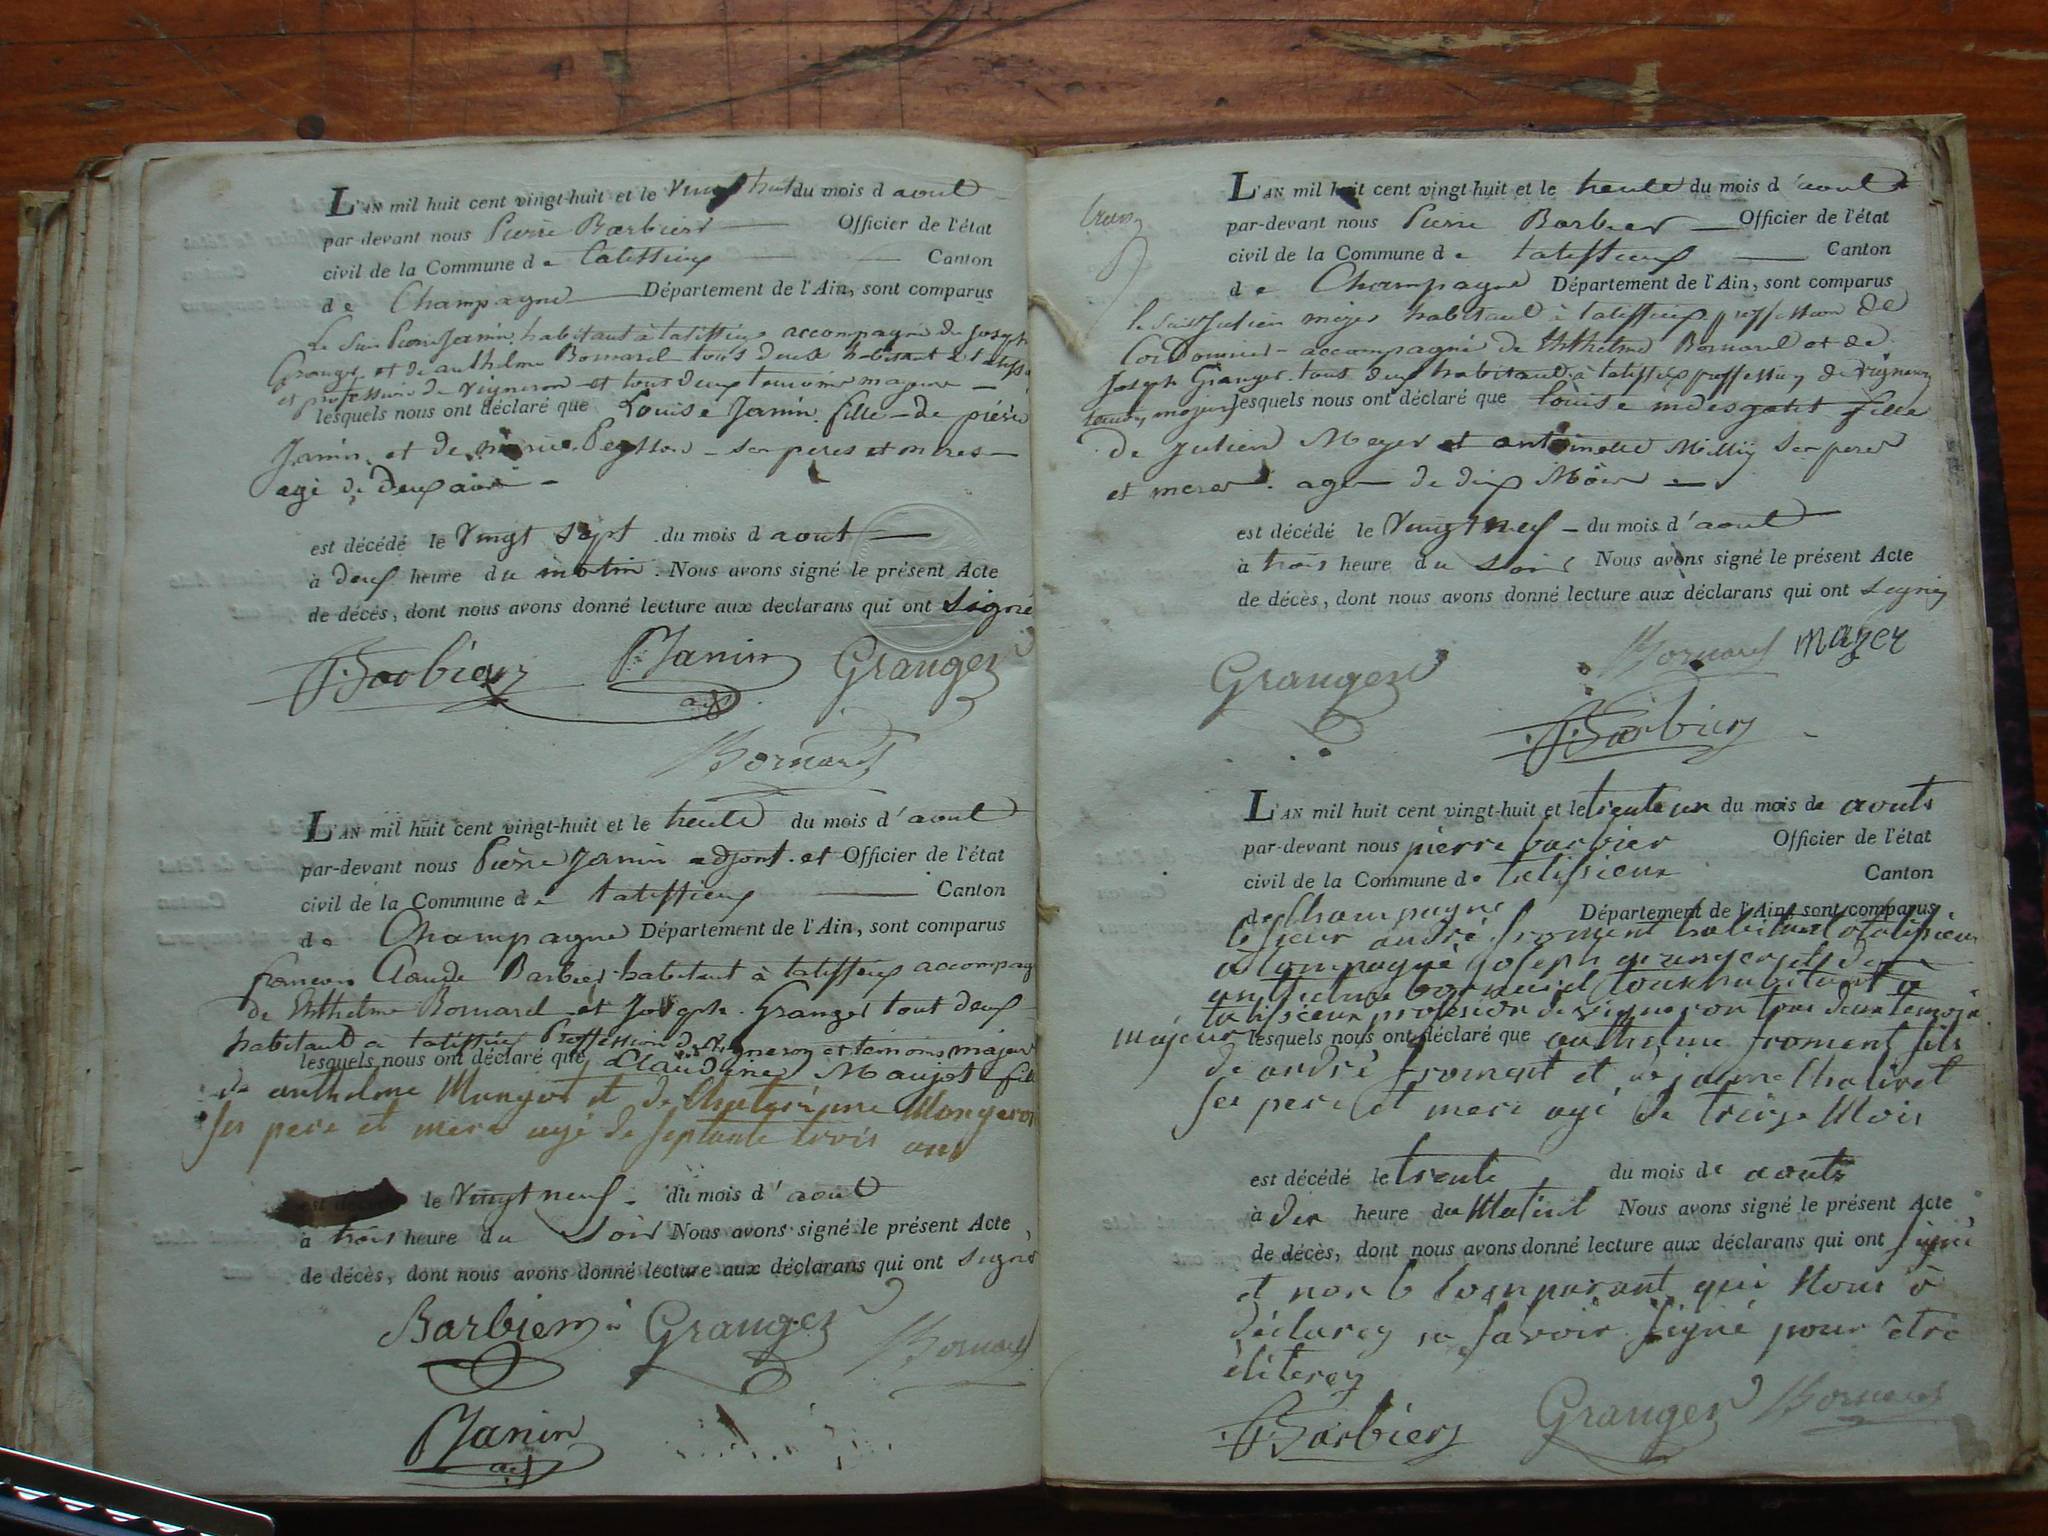 L'AN mil huit cent vingt-huit et le Vingt huit du mois d aout
par-devant nous Pierre Barbier Officier de l'état
civil de la Commune de talissieu Canton
de Champagne Département de l'Ain, sont comparus
Le Sieur Pierre Janin habitant à talissieu accompagné de Joseph
Granger et de anthelme Bornard tous deux habitant à
et profession de vigneron et tous deux temoins majeurs
lesquels nous ont déclaré que Louise Janin fille de pierre
Janin et de marie ses peres et meres
agé de deux ans
est décédé le Vingt sept du mois d aout
à deux heure du matin. Nous avons signé le présent Acte
de décès, dont nous avons donné lecture aux declarans qui ont Signé
P. Barbier PJanin Granger
adj
Bornard
L'AN mil huit cent vingt-huit et le trente du mois d' aout
par-devant nous Pierre Janin adjont et Officier de l'état
civil de la Commune de talissieu Canton
de Champagne Département de l'Ain, sont comparus
francois Claude Barbier habitant à talissieux accompag
de Anthelme Bornard et Joseph Granger tout deux
habitant a talissieu Proffession de vigneron et temoins majeur
lesquels nous ont déclaré que Claudine Maujot fille
de anthelme Maujot et de
ses pere et mere agé de septante trois ans
est décédé le Vingt neuf du mois d' aout
à trois heure du Soir Nous avons signé le présent Acte
de décès, dont nous avons donné lecture aux déclarans qui ont signé
Barbier Granger Bornard
PJanin
adj
L'AN mil huit cent vingt-huit et le trente du mois d' aout
par-devant nous Pierre Barbier Officier de l'état
civil de la Commune de talissieux Canton
de Champagne Département de l'Ain, sont comparus
le Sieur Julien meyer habitant à talissieux proffession de
Cordonnier accompagné de Anthelme Bornard et de
Joseph Granger tous deux habitant à talissieux proffession de Vigneron
temoin majeur lesquels nous ont déclaré que Louise fille
de Julien Meyer et antoinette Milliy ses peres
et meres age de dix Mois
est décédé le Vingt neuf du mois d' aout
à trois heure du soir Nous avons signé le présent Acte
de décès, dont nous avons donné lecture aux déclarans qui ont signé
Bornard mayer
Granger
P. Barbier
L'AN mil huit cent vingt-huit et le trenteun du mois de aouts
par-devant nous pierre barbier Officier de l'état
civil de la Commune de talissieux Canton
de Champagne Département de l'Ain, sont comparus
le sieur andré froment habitant a talissieux
acompagné joseph granger et de
anthelme bornard tous habitant a
talissieux profesion de vigneron tous deux temoin
majeur lesquels nous ont déclaré que anthelme froment fils
de andré froment et de
ses pere et mere agé de treize Mois
est décédé le trente du mois de aouts
à dix heure du Matin Nous avons signé le présent Acte
de décès, dont nous avons donné lecture aux déclarans qui ont signé
et non le Comparant qui Nous a
déclarez ne savoir signé pour être
P. Barbier Granger Bornard